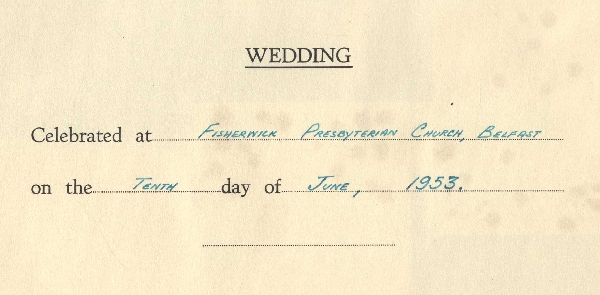 WEDDING
Celebrated at Fisherwick Presbyterian Church, Belfast
on the Tenth day of June, 1953.